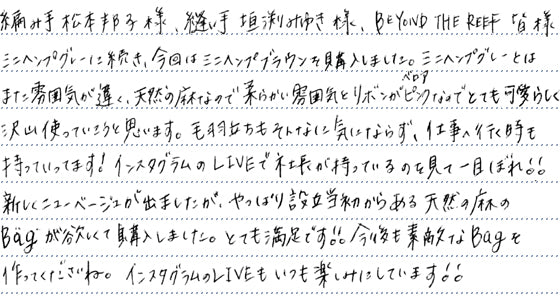 編み手 松本邦子様、縫い手 垣渕みゆき様、BEYOND THE REEF 皆様
ミニヘンプグレーに続き、今回はミニヘンプブラウンを購入しました。ミニヘンプグレーとは
また雰囲気が違く、天然の麻なので柔らかい雰囲気とリボンがベロアピンクなのでとても可愛らしく
沢山使っていこうと思います。毛羽立ちもそんなに気にならず、仕事へ行く時も
持っていってます! インスタグラムのLIVEで社長が持っているのを見て一目ぼれ!!
新しくニューベージュが出ましたが、やっぱり設立当初からある天然の麻の
Bagが欲しくて購入しました。とても満足です!! 今後も素敵なBagを
作ってくださいね。インスタグラムのLIVEもいつも楽しみにしています!!